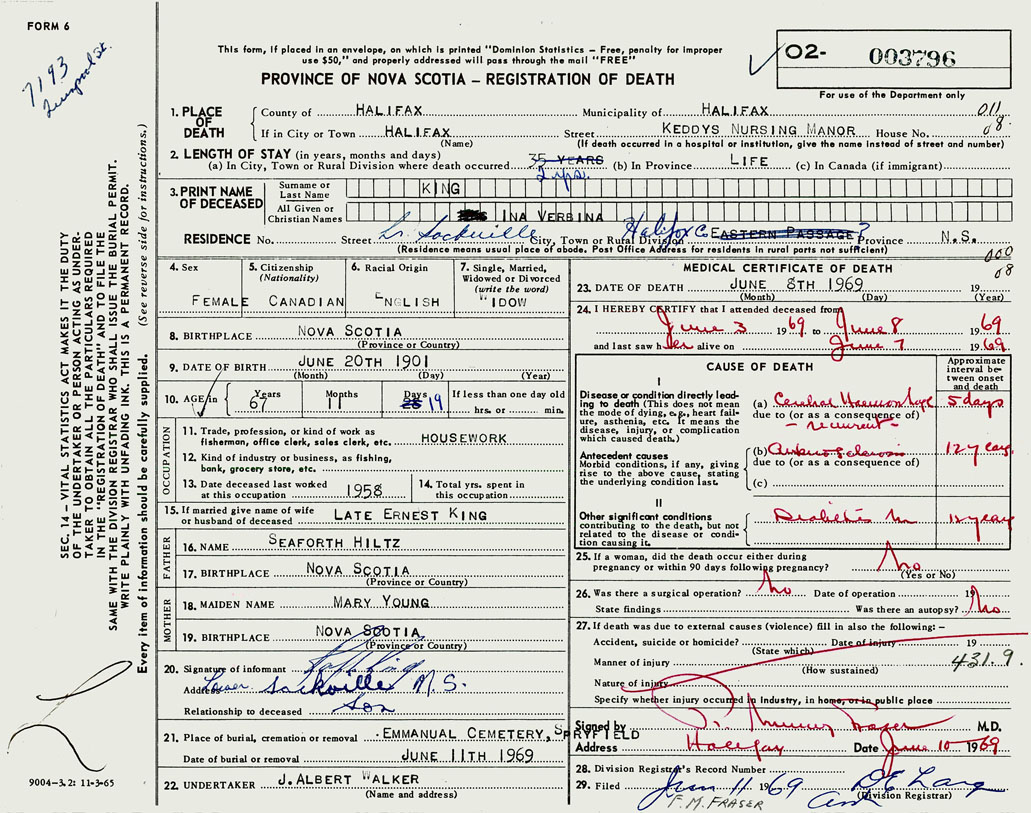 FORM 6
7193
Liverpool St.
This form, if placed in an envelope, on which is printed "Dominion Statistics – Free, penalty for improper
use $50," and properly addressed will pass through the mail "FREE"
PROVINCE OF NOVA SCOTIA – REGISTRATION OF DEATH
O2- 003796
For use of the Department only
SEC. 14 – VITAL STATISTICS ACT MAKES IT THE DUTY
OF THE UNDERTAKER OR PERSON ACTING AS UNDER-
TAKER TO OBTAIN ALL THE PARTICULARS REQUIRED
IN THE "REGISTRATION OF DEATH" AND TO FILE THE
SAME WITH THE DIVISION REGISTRAR WHO SHALL ISSUE THE BURIAL PERMIT.
WRITE PLAINLY WITH UNFADING INK. THIS IS A PERMANENT RECORD.
Every item of information should be carefully supplied. (See reverse side for instructions.)
1. PLACE OF DEATH
County of HALIFAX Municipality of HALIFAX 011
If in City or Town HALIFAX Street KEDDYS NURSING MANOR House No. 08
(Name) (If death occurred in a hospital or institution, give the name instead of street and number)
2. LENGTH OF STAY (in years, months and days)
(a) In City, Town or Rural Division where death occurred 35 YEARS (b) In Province LIFE (c) In Canada (if immigrant)
2 yrs.
3. PRINT NAME OF DECEASED
Surname or Last Name KING
All Given or Christian Names INA VERBINA
RESIDENCE No. Street Lr Sackville City, Town or Rural Division Halifax Co EASTERN PASSAGE Province N.S.
(Residence means usual place of abode. Post Office Address for residents in rural parts not sufficient)
000
08
4. Sex FEMALE
5. Citizenship (Nationality) CANADIAN
6. Racial Origin ENGLISH
7. Single, Married, Widowed or Divorced (write the word) WIDOW
8. BIRTHPLACE NOVA SCOTIA
(Province or Country)
9. DATE OF BIRTH JUNE 20TH 1901
(Month) (Day) (Year)
10. AGE in Years 67 Months 11 Days 19 If less than one day old
hrs. or min.
OCCUPATION
11. Trade, profession, or kind of work as fisherman, office clerk, sales clerk, etc. HOUSEWORK
12. Kind of industry or business, as fishing, bank, grocery store, etc.
13. Date deceased last worked at this occupation 1958
14. Total yrs. spent in this occupation
15. If married give name of wife or husband of deceased LATE ERNEST KING
FATHER
16. NAME SEAFORTH HILTZ
17. BIRTHPLACE NOVA SCOTIA
(Province or Country)
MOTHER
18. MAIDEN NAME MARY YOUNG
19. BIRTHPLACE NOVA SCOTIA
(Province or Country)
20. Signature of informant King
Address Lower Sackville N.S.
Relationship to deceased Son
21. Place of burial, cremation or removal EMMANUAL CEMETERY, SPRYFIELD
Date of burial or removal JUNE 11TH 1969
22. UNDERTAKER J. ALBERT WALKER
(Name and address)
9004-3.2: 11-3-65
MEDICAL CERTIFICATE OF DEATH
23. DATE OF DEATH JUNE 8TH 1969 19
(Month) (Day) (Year)
24. I HEREBY CERTIFY that I attended deceased from
June 3 1969 to June 8 1969
and last saw her alive on June 7 1969
CAUSE OF DEATH
Approximate interval between onset and death
I
Disease or condition directly leading to death (This does not mean the mode of dying, e.g., heart failure, asthenia, etc. It means the disease, injury, or complication which caused death.)
(a) Cerebral Haemorrhage 5 days
due to (or as a consequence of)
- recurrent -
Antecedent causes
Morbid conditions, if any, giving rise to the above cause, stating the underlying condition last.
(b) Arteriosclerosis 12 years
due to (or as a consequence of)
(c)
II
Other significant conditions contributing to the death, but not related to the disease or condition causing it.
Diabetes M 12 years
25. If a woman, did the death occur either during
pregnancy or within 90 days following pregnancy? No
(Yes or No)
26. Was there a surgical operation? No Date of operation 19
State findings Was there an autopsy? No
27. If death was due to external causes (violence) fill in also the following: –
Accident, suicide or homicide? Date of injury 19
(State which)
Manner of injury 431.9.
(How sustained)
Nature of injury
Specify whether injury occurred in Industry, in home, or in public place
Signed by Fraser M.D.
Address Halifax Date June 10 1969
28. Division Registrar's Record Number
29. Filed Jun 11 1969
(Division Registrar)
F. M. FRASER